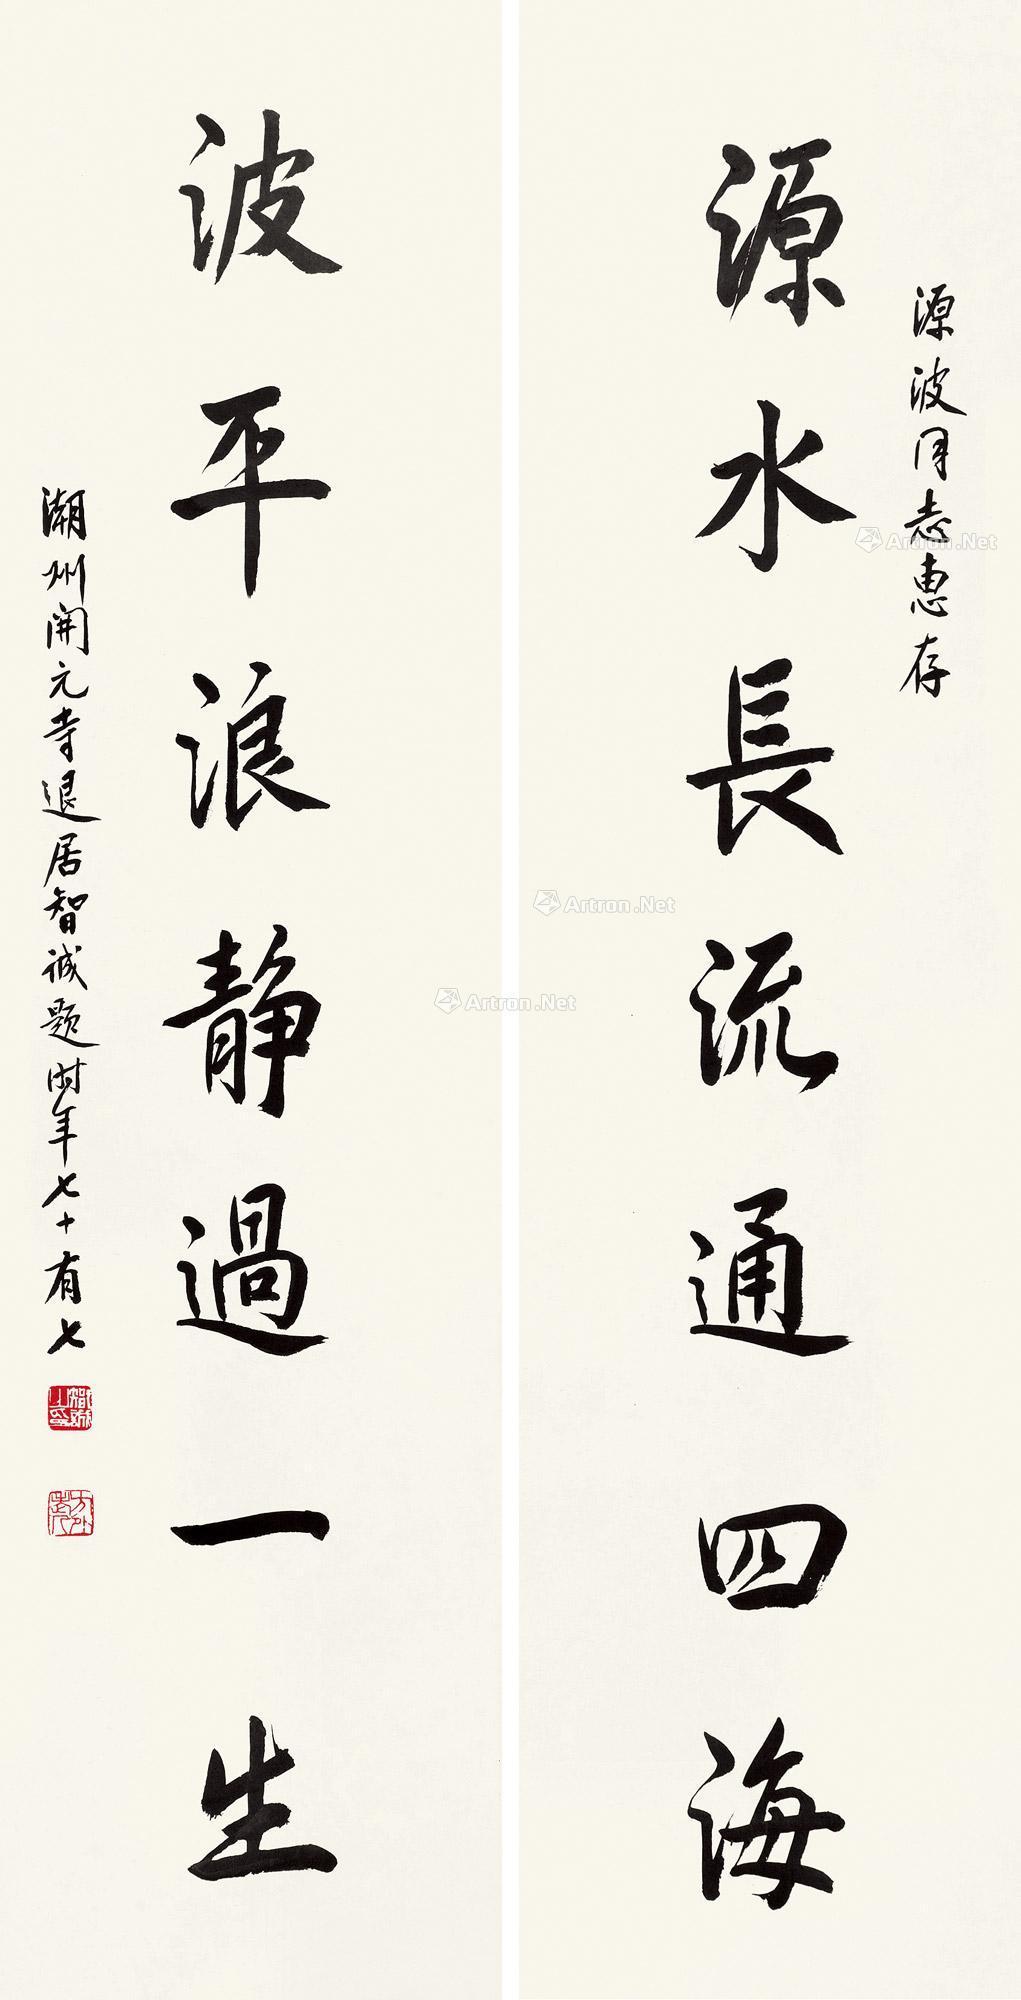 源波同志惠存
源水長流通四海
波平浪静過一生
潮州開元寺退居智诚题时年七十有七
Artron.Net
Artron.Net
Artron.Net